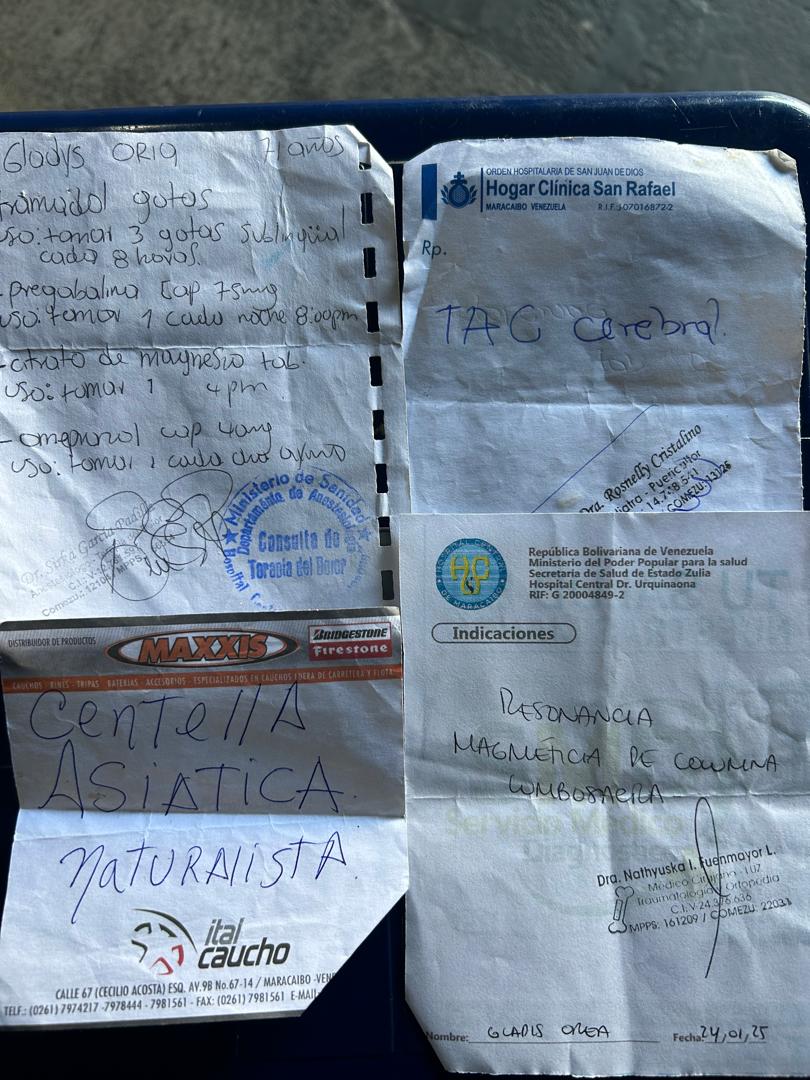 Gladys ORIA 71 años
tramadol gotas
uso: tomar 3 gotas sublingüal
cada 8 horas.
- pregabalina cap 75mg
uso: tomar 1 cada noche 8:00pm
- citrato de magnesio tab.
uso: tomar 1 4pm
- omeprazol cap 40mg
uso: tomar 1 cada dia ayuno
Ministerio de Sanidad
Departamento de Anestesiología
Consulta de
Terapia del Dolor
Hospital
ORDEN HOSPITALARIA DE SAN JUAN DE DIOS
Hogar Clínica San Rafael
MARACAIBO VENEZUELA R.I.F. J-07016872-2
Rp.
TAC cerebral.
Dra. Rosnelly Cristalino
Puericultor
COMEZU: 13126
DISTRIBUIDOR DE PRODUCTOS
MAXXIS
BRIDGESTONE
Firestone
CAUCHOS - RINES - TRIPAS - BATERIAS - ACCESORIOS - ESPECIALIZADOS EN CAUCHOS FUERA DE CARRETERA Y FLOTA
CENTELLA
ASIATICA.
NATURALISTA.
ital
caucho
CALLE 67 (CECILIO ACOSTA) ESQ. AV.9B No.67-14 / MARACAIBO -VEN
TELF.: (0261) 7974217 -7978444 - 7981561 - FAX: (0261) 7981561 E-MAI
HOSPITAL CENTRAL
DE MARACAIBO
República Bolivariana de Venezuela
Ministerio del Poder Popular para la salud
Secretaria de Salud de Estado Zulia
Hospital Central Dr. Urquinaona
RIF: G 20004849-2
Indicaciones
RESONANCIA
MAGNÉTICIA DE COLUMNA
LUMBOSACRA
Servicio Médico
Dra. Nathyuska I. Fuenmayor L.
Médico Cirujano - LUZ
Traumatología y Ortopedia
C.I. V-24.376.636
MPPS: 161209 / COMEZU: 22031
Nombre: GLADIS OREA Fecha: 24,01,25